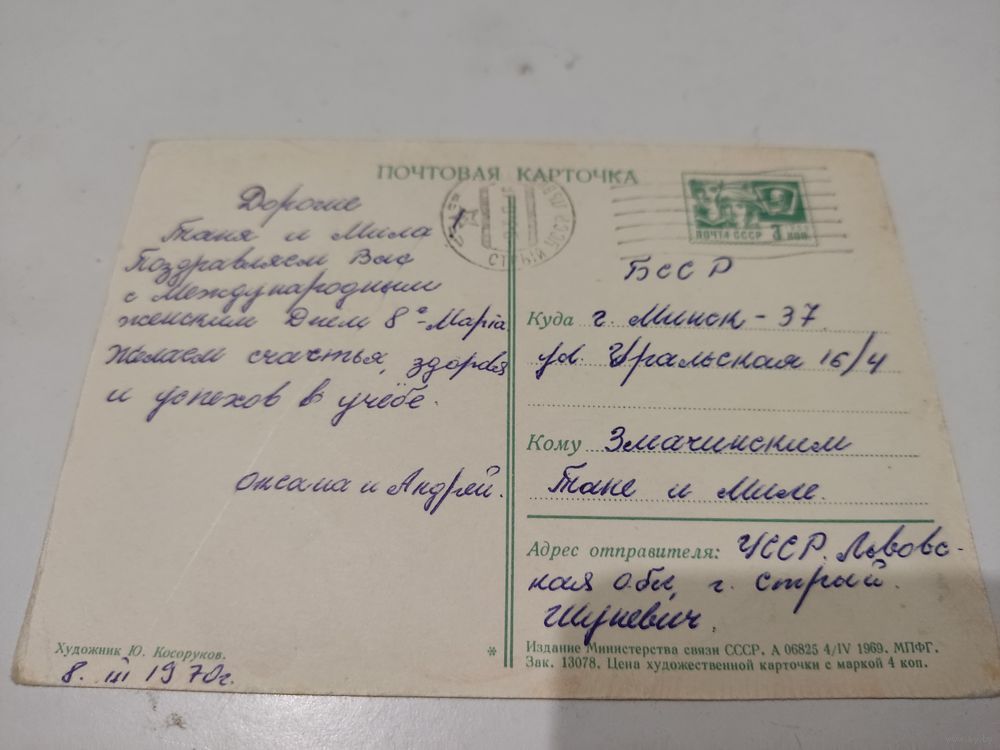 ПОЧТОВАЯ КАРТОЧКА
Дорогие
Таня и Мила
Поздравляем Вас
с Международным
женским Днем 8е-Марта.
Желаем счастья, здоровья
и успехов в учёбе.
Оксана и Андрей.
Художник Ю. Косоруков.
8. III 1970г.
СТРЫЙ
ПОЧТА СССР 3 КОП
БССР
Куда г. Минск - 37
ул. Уральская 16/4
Кому Змачинским
Тане и Миле.
Адрес отправителя: УССР. Львовс-
кая обл, г. Стрый.
Шуневич.
*
Издание Министерства связи СССР. А 06825 4/IV 1969. МПФГ.
Зак. 13078. Цена художественной карточки с маркой 4 коп.